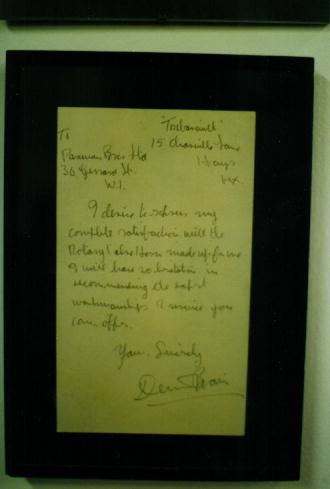 To
Paxman Bros Ltd
36 Gerrard St.
W.1.
15 Lane
Hayes
Mx.
I desire to express my
complete satisfaction with the
Rotary/alto Horn made up for me
I will have no hesitation in
recommending the expert
workmanship & service your
com. offer.
Yours Sincerely
Dennis Brain